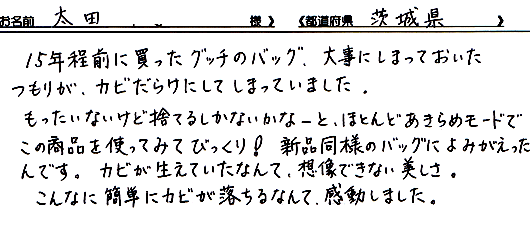 お名前 太田 様 》 《都道府県 茨城県 》
15年程前に買ったグッチのバッグ、大事にしまっておいた
つもりが、カビだらけにしてしまっていました。
もったいないけど捨てるしかないかなーと、ほとんどあきらめモードで
この商品を使ってみてびっくり! 新品同様のバッグによみがえった
んです。カビが生えていたなんて、想像できない美しさ。
こんなに簡単にカビが落ちるなんて、感動しました。